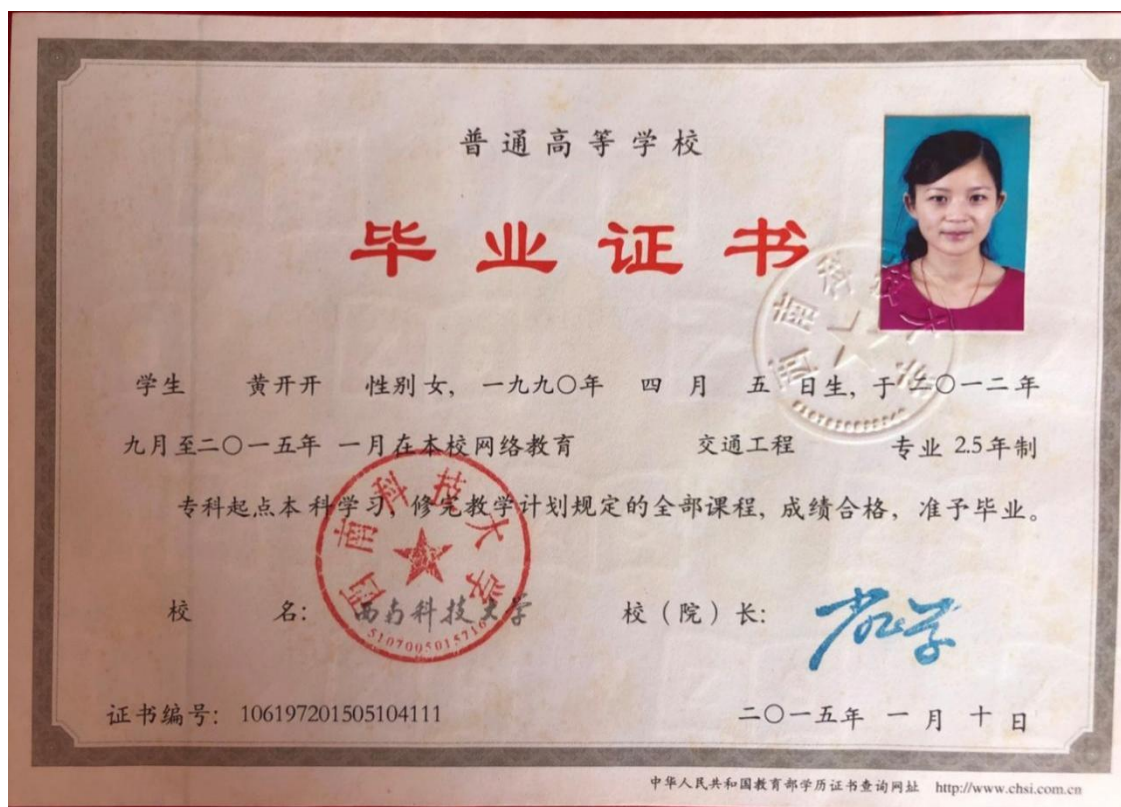 普通高等学校
毕业证书
学生 黄开开 性别 女, 一九九〇年 四 月 五 日生, 于二〇一二年
九月至二〇一五年 一月在本校网络教育 交通工程 专业 2.5年制
专科起点本科学习, 修完教学计划规定的全部课程, 成绩合格, 准予毕业。
校 名: 西南科技大学 校（院）长:
西南科技大学
5107005015716
西南科技大学
证书编号: 106197201505104111 二〇一五年 一 月 十 日
中华人民共和国教育部学历证书查询网址 http://www.chsi.com.cn